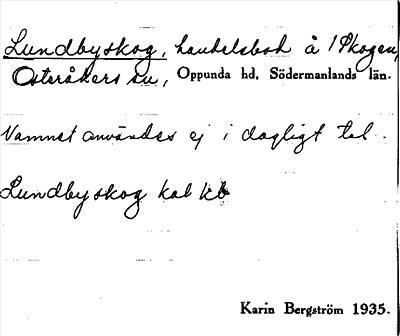 Lundbyskog, handelsbod å 1 Skogen,
Österåkers sn, Oppunda hd, Södermanlands län.
Namnet användes ej i dagligt tal.
Lundbyskog kal kb
Karin Bergström 1935.